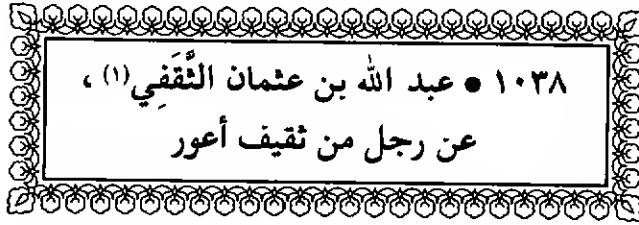 ١٠٣٨ • عبد الله بن عثمان الثَّقَفِي(١) ،
عن رجل من ثقيف أعور